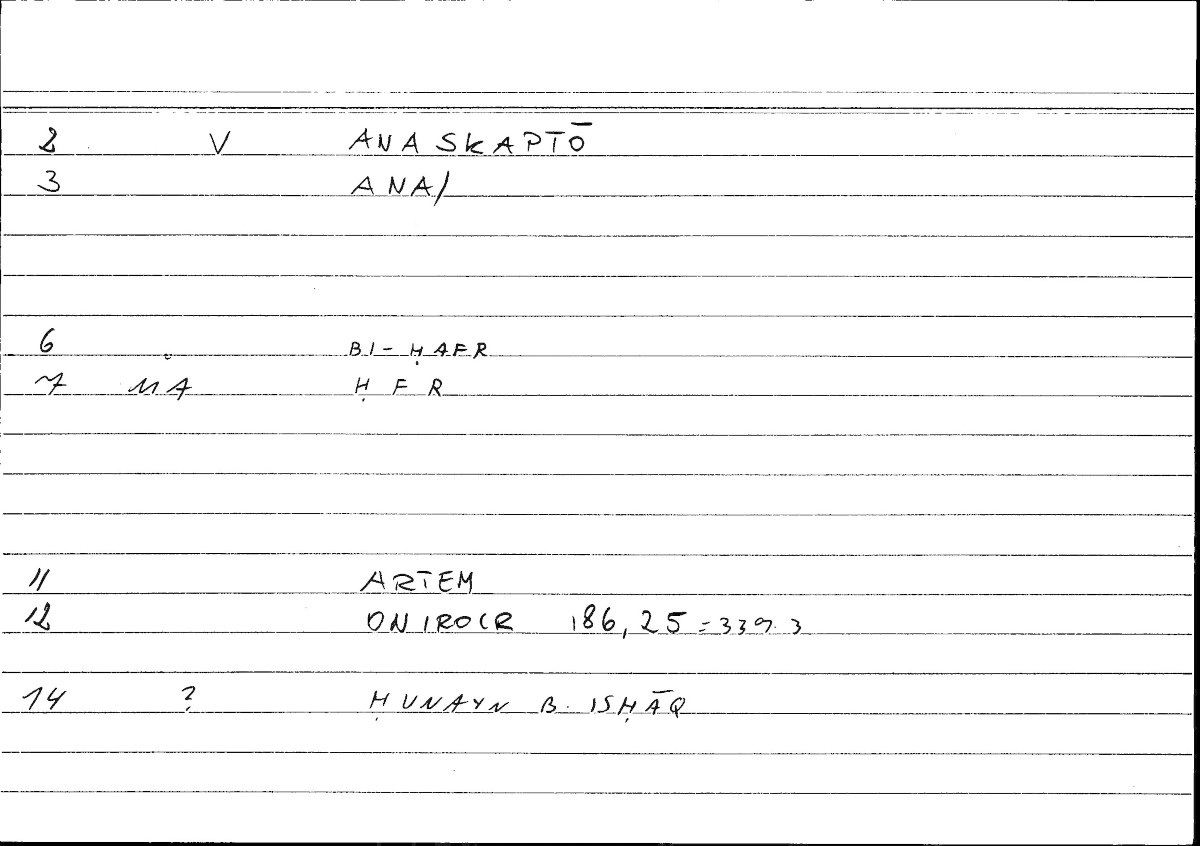 2 V ANASKAPTŌ
3 ANA/
6 BI-ḤAFR
7 MA ḤFR
11 ARTEM
12 ONIROCR 186,25=339.3
14 ? ḤUNAYN B. ISḤĀQ